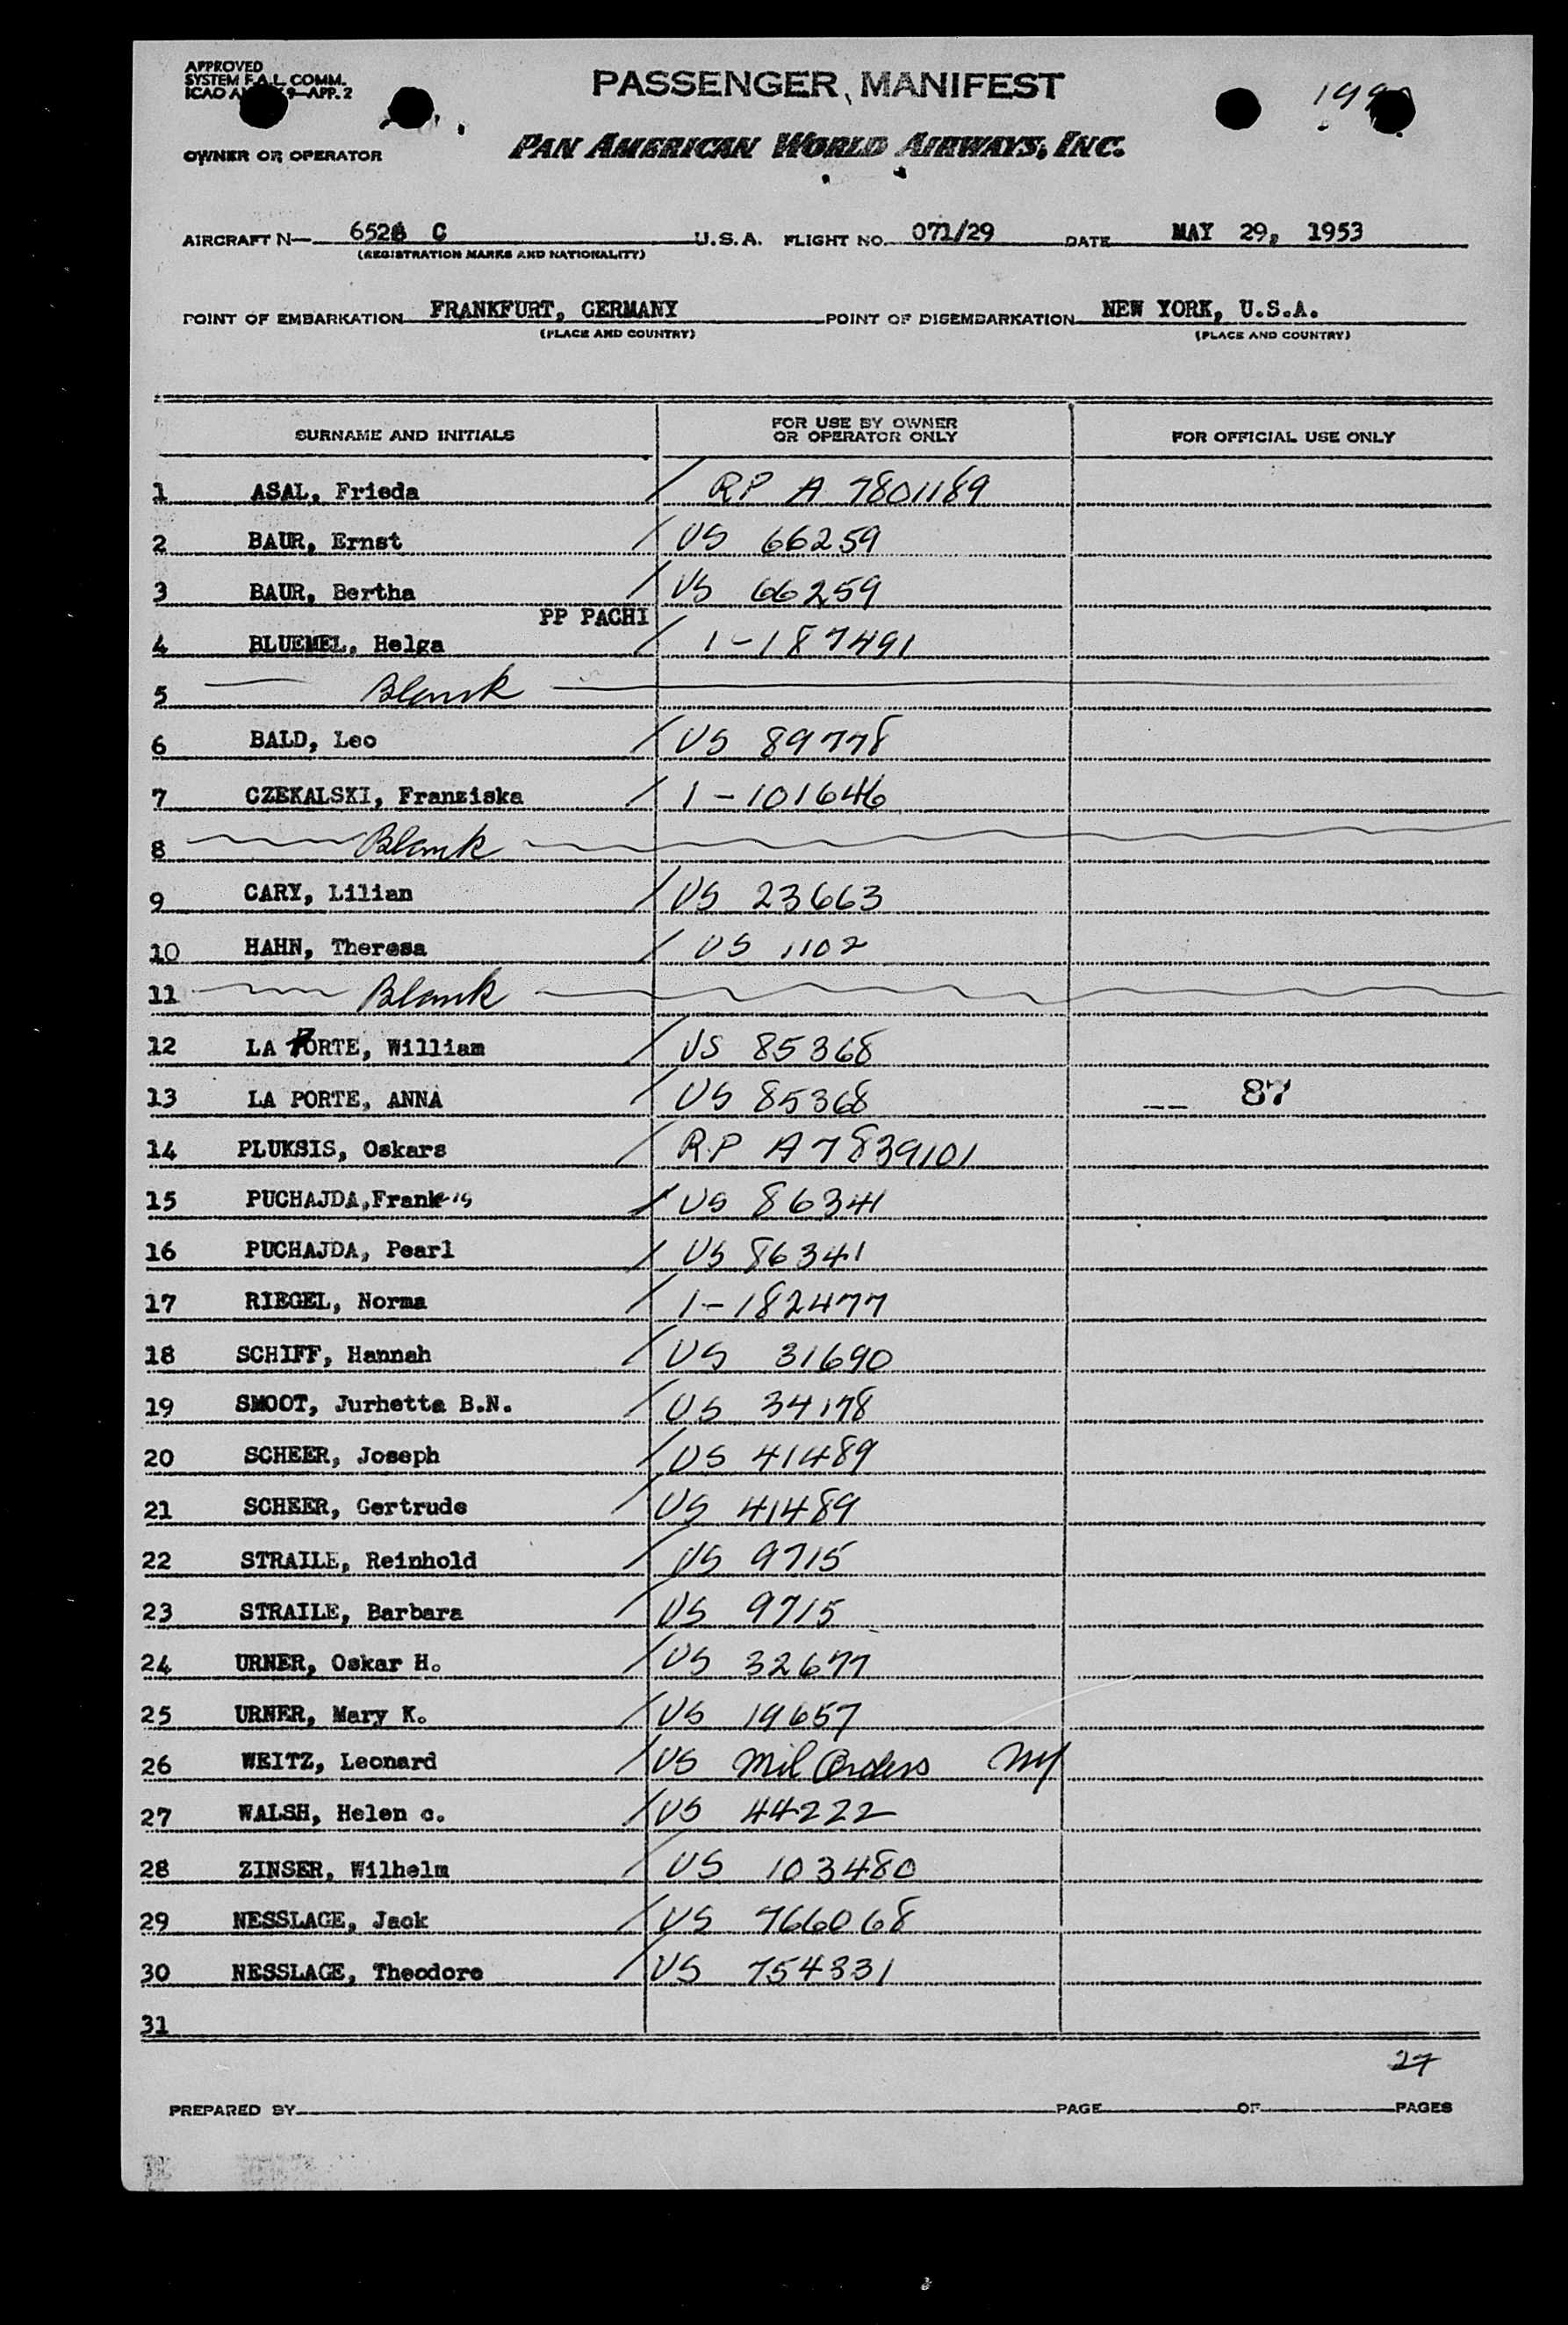 APPROVED
SYSTEM F.A.L. COMM.
ICAO 9-APP. 2
PASSENGER MANIFEST
OWNER OR OPERATOR
PAN AMERICAN WORLD AIRWAYS, INC.
AIRCRAFT N— C U.S.A. FLIGHT NO. 071/29 DATE MAY 29, 1953
(REGISTRATION MARKS AND NATIONALITY)
POINT OF EMBARKATION FRANKFURT, GERMANY POINT OF DISEMBARKATION NEW YORK, U.S.A.
(PLACE AND COUNTRY) (PLACE AND COUNTRY)
SURNAME AND INITIALS FOR USE BY OWNER OR OPERATOR ONLY FOR OFFICIAL USE ONLY
1 ASAL, Frieda / RP A 7801189
2 BAUR, Ernst / US 66259
3 BAUR, Bertha / US 66259
PP PACHI
4 BLUEMEL, Helga / 1-187491
5 Blank
6 BALD, Leo / US 89778
7 CZEKALSKI, Franziska / 1-101646
8 Blank
9 CARY, Lilian / US 23663
10 HAHN, Theresa / US 1102
11 Blank
12 LA PORTE, William / US 85368
13 LA PORTE, ANNA / US 85368 -- 87
14 PLUKSIS, Oskars / RP A7839101
15 PUCHAJDA, Frank / US 86341
16 PUCHAJDA, Pearl / US 86341
17 RIEGEL, Norma / 1-182477
18 SCHIFF, Hannah / US 31690
19 SMOOT, Jurhetta B.N. / US 34178
20 SCHEER, Joseph / US 41489
21 SCHEER, Gertrude / US 41489
22 STRAILE, Reinhold / US 9715
23 STRAILE, Barbara / US 9715
24 URNER, Oskar H. / US 32677
25 URNER, Mary K. / US 19657
26 WEITZ, Leonard / US Mil Orders
27 WALSH, Helen c. / US 44222
28 ZINSER, Wilhelm / US 103480
29 NESSLAGE, Jack / US 766068
30 NESSLAGE, Theodore / US 754331
31
27
PREPARED BY PAGE OF PAGES